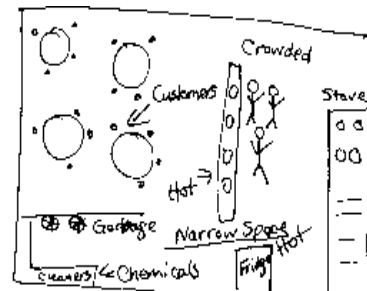 Crowded
Customers
Stove
Hot
Garbage
Narrow Space
Hot
Fridge
Cleaners
Chemicals